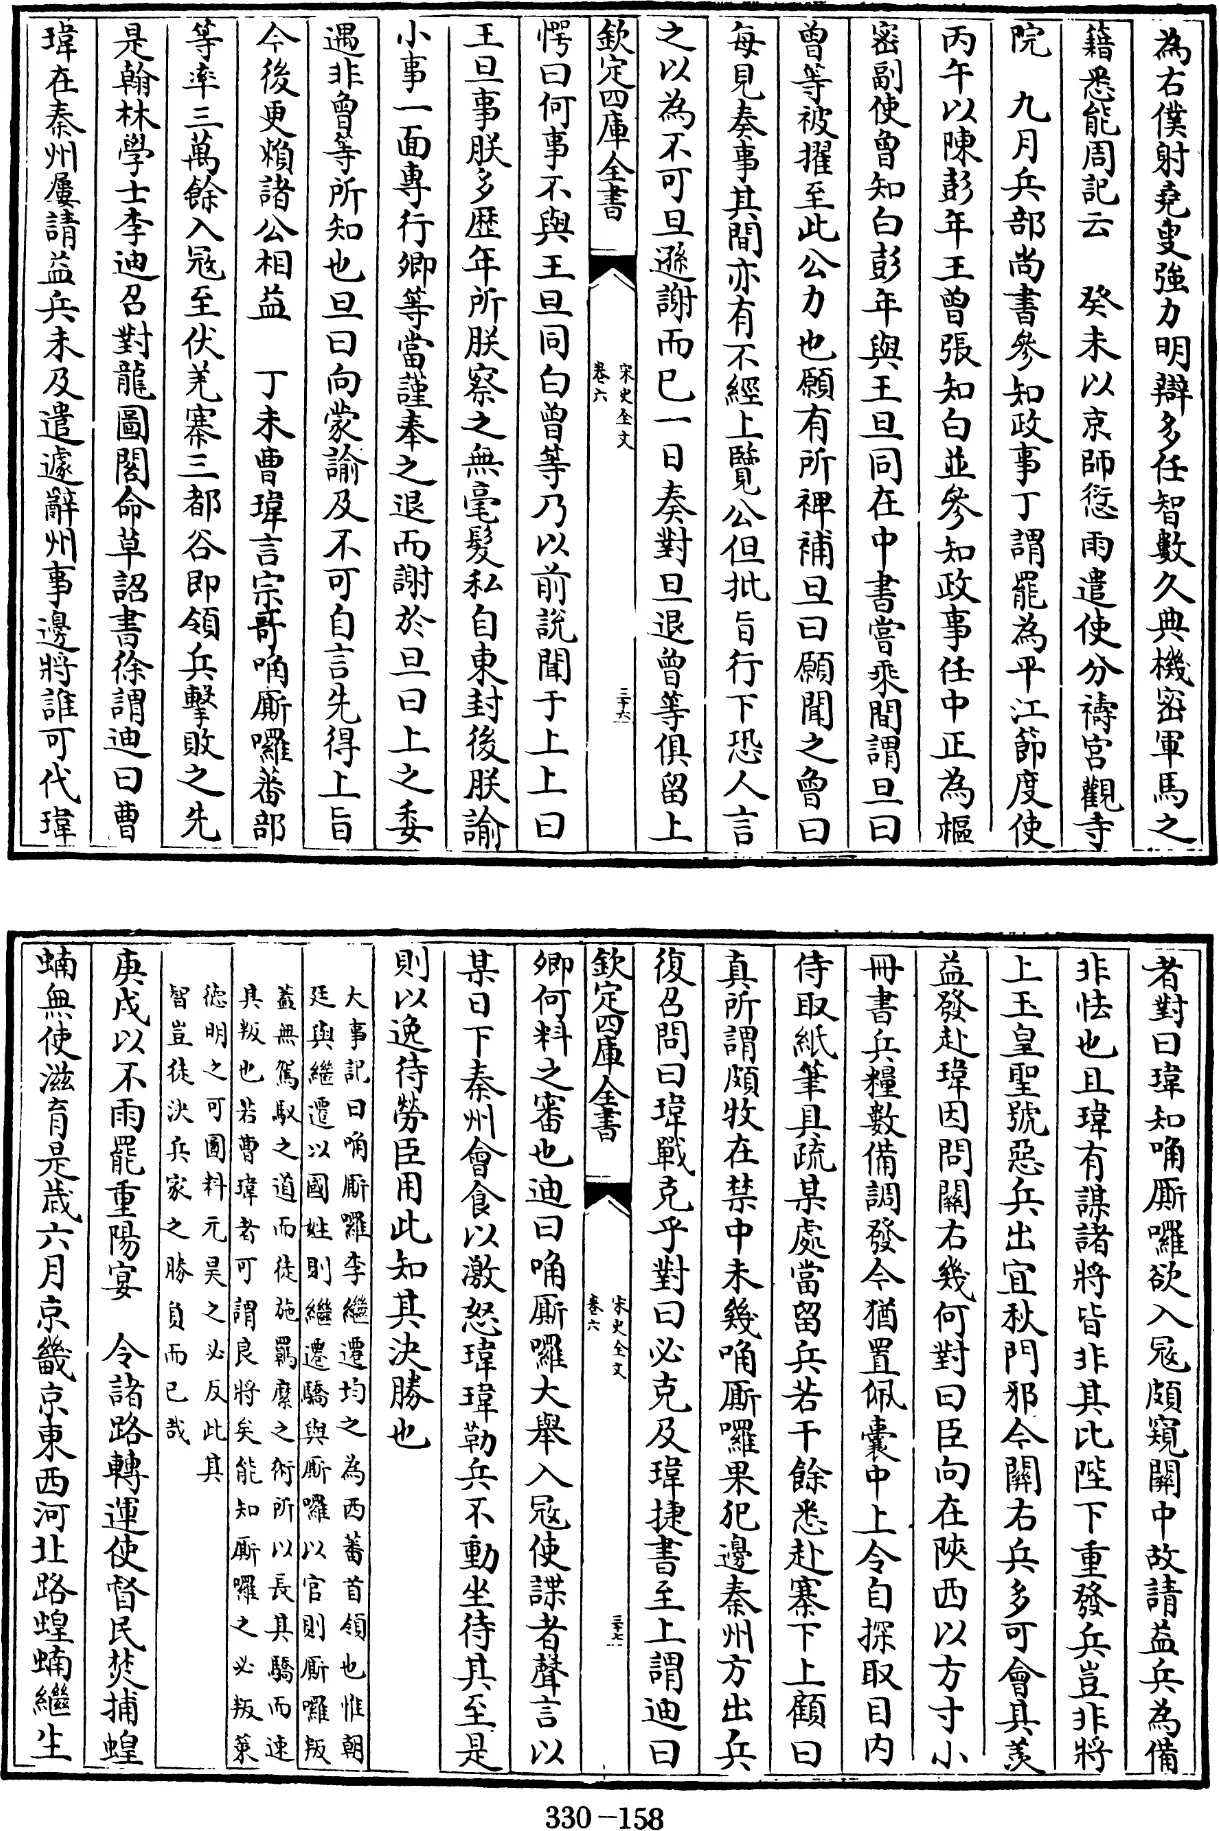 為右僕射堯叟強力明辯多任智數久典機密軍馬之
籍悉能周記云　癸未以京師愆雨遣使分禱宮觀寺
院　九月兵部尚書參知政事丁謂罷為平江節度使
丙午以陳彭年王曾張知白並參知政事任中正為樞
密副使曾知白彭年與王旦同在中書嘗乘間謂旦曰
曾等被擢至此公力也願有所裨補旦曰願聞之曾曰
每見奏事其間亦有不經上覽公但批旨行下恐人言
之以為不可旦遜謝而已一日奏對旦退曾等俱留上
欽定四庫全書
宋史全文
卷六
三十六
愕曰何事不與王旦同白曾等乃以前說聞于上上曰
王旦事朕多歷年所朕察之無毫髮私自東封後朕諭
小事一面專行卿等當謹奉之退而謝於旦曰上之委
遇非曾等所知也旦曰向蒙諭及不可自言先得上旨
今後更頼諸公相益　丁未曹瑋言宗哥唃厮囉蕃部
等率三萬餘入冦至伏羌寨三都谷即領兵擊敗之先
是翰林學士李迪召對龍圖閣命草詔書徐謂迪曰曹
瑋在秦州屢請益兵未及遣遽辭州事邊將誰可代瑋
者對曰瑋知唃厮囉欲入冦頗窺關中故請益兵為備
非怯也且瑋有謀諸將皆非其比陛下重發兵豈非將
上玉皇聖號惡兵出宜秋門邪今關右兵多可會其羨
益發赴瑋因問關右幾何對曰臣向在陝西以方寸小
冊書兵糧數備調發今猶置佩囊中上令自探取目内
侍取紙筆具疏某處當留兵若干餘悉赴寨下上顧曰
真所謂頗牧在禁中未幾唃厮囉果犯邊秦州方出兵
復召問曰瑋戰克乎對曰必克及瑋捷書至上謂迪曰
欽定四庫全書
宋史全文
卷六
三十七
卿何料之審也迪曰唃厮囉大舉入冦使諜者聲言以
某日下秦州會食以激怒瑋瑋勒兵不動坐待其至是
則以逸待勞臣用此知其决勝也
大事記曰唃厮囉李繼遷均之為西蕃首領也惟朝
廷與繼遷以國姓則繼遷驕與厮囉以官則厮囉叛
蓋無駕馭之道而徒施羈縻之術所以長其驕而速
其叛也若曹瑋者可謂良將矣能知厮囉之必叛策
德明之可圖料元昊之必反此其
智豈徒決兵家之勝負而已哉
庚戌以不雨罷重陽宴　令諸路轉運使督民焚捕蝗
蝻無使滋育是歲六月京畿京東西河北路蝗蝻繼生
330-158